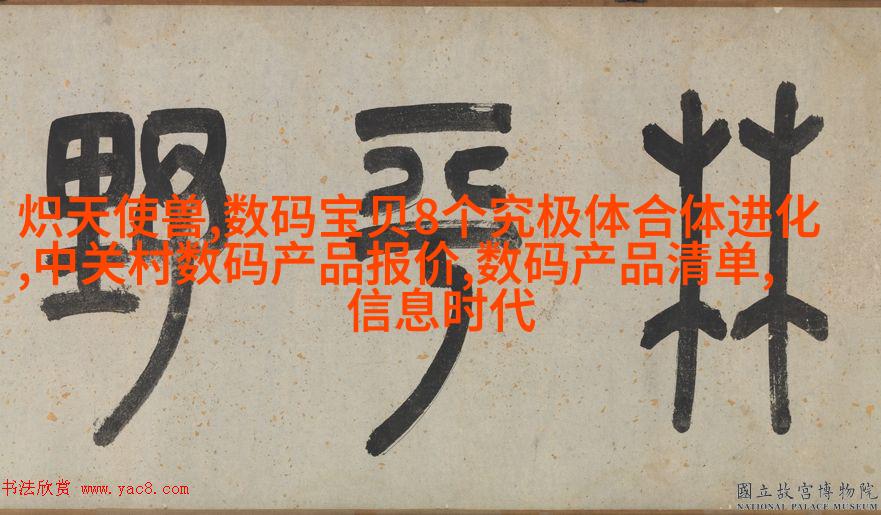 野亭林
炽天使兽,数码宝贝8个究极体合体进化
,中关村数码产品报价,数码产品清单,
信息时代
书法欣赏 www.yac8.com
國立故宮博物院
NATIONAL PALACE MUSEUM